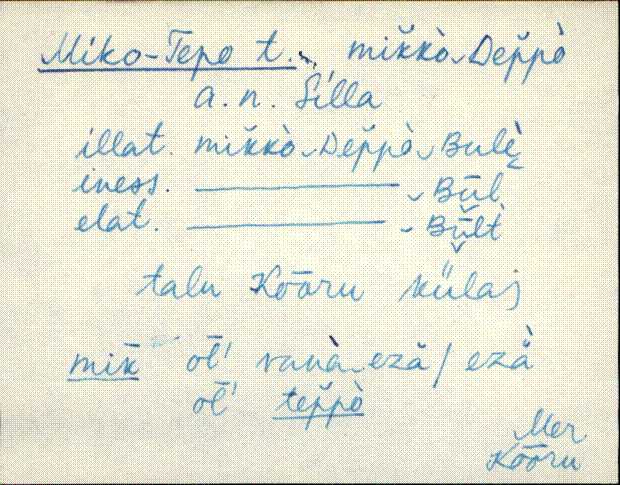 Miko-Tepo t., mik̆kò‿Dep̆pò
a. n. Silla
illat. mik̆kò‿Dep̆pò‿Bulè
iness. ——— ‿Būl
elat. ——— ‿Būlt
talu Kõõru külas
mīk ol̄' vanà‿eză / ezà
ol̄' tep̆pò
Mer
Kõõru